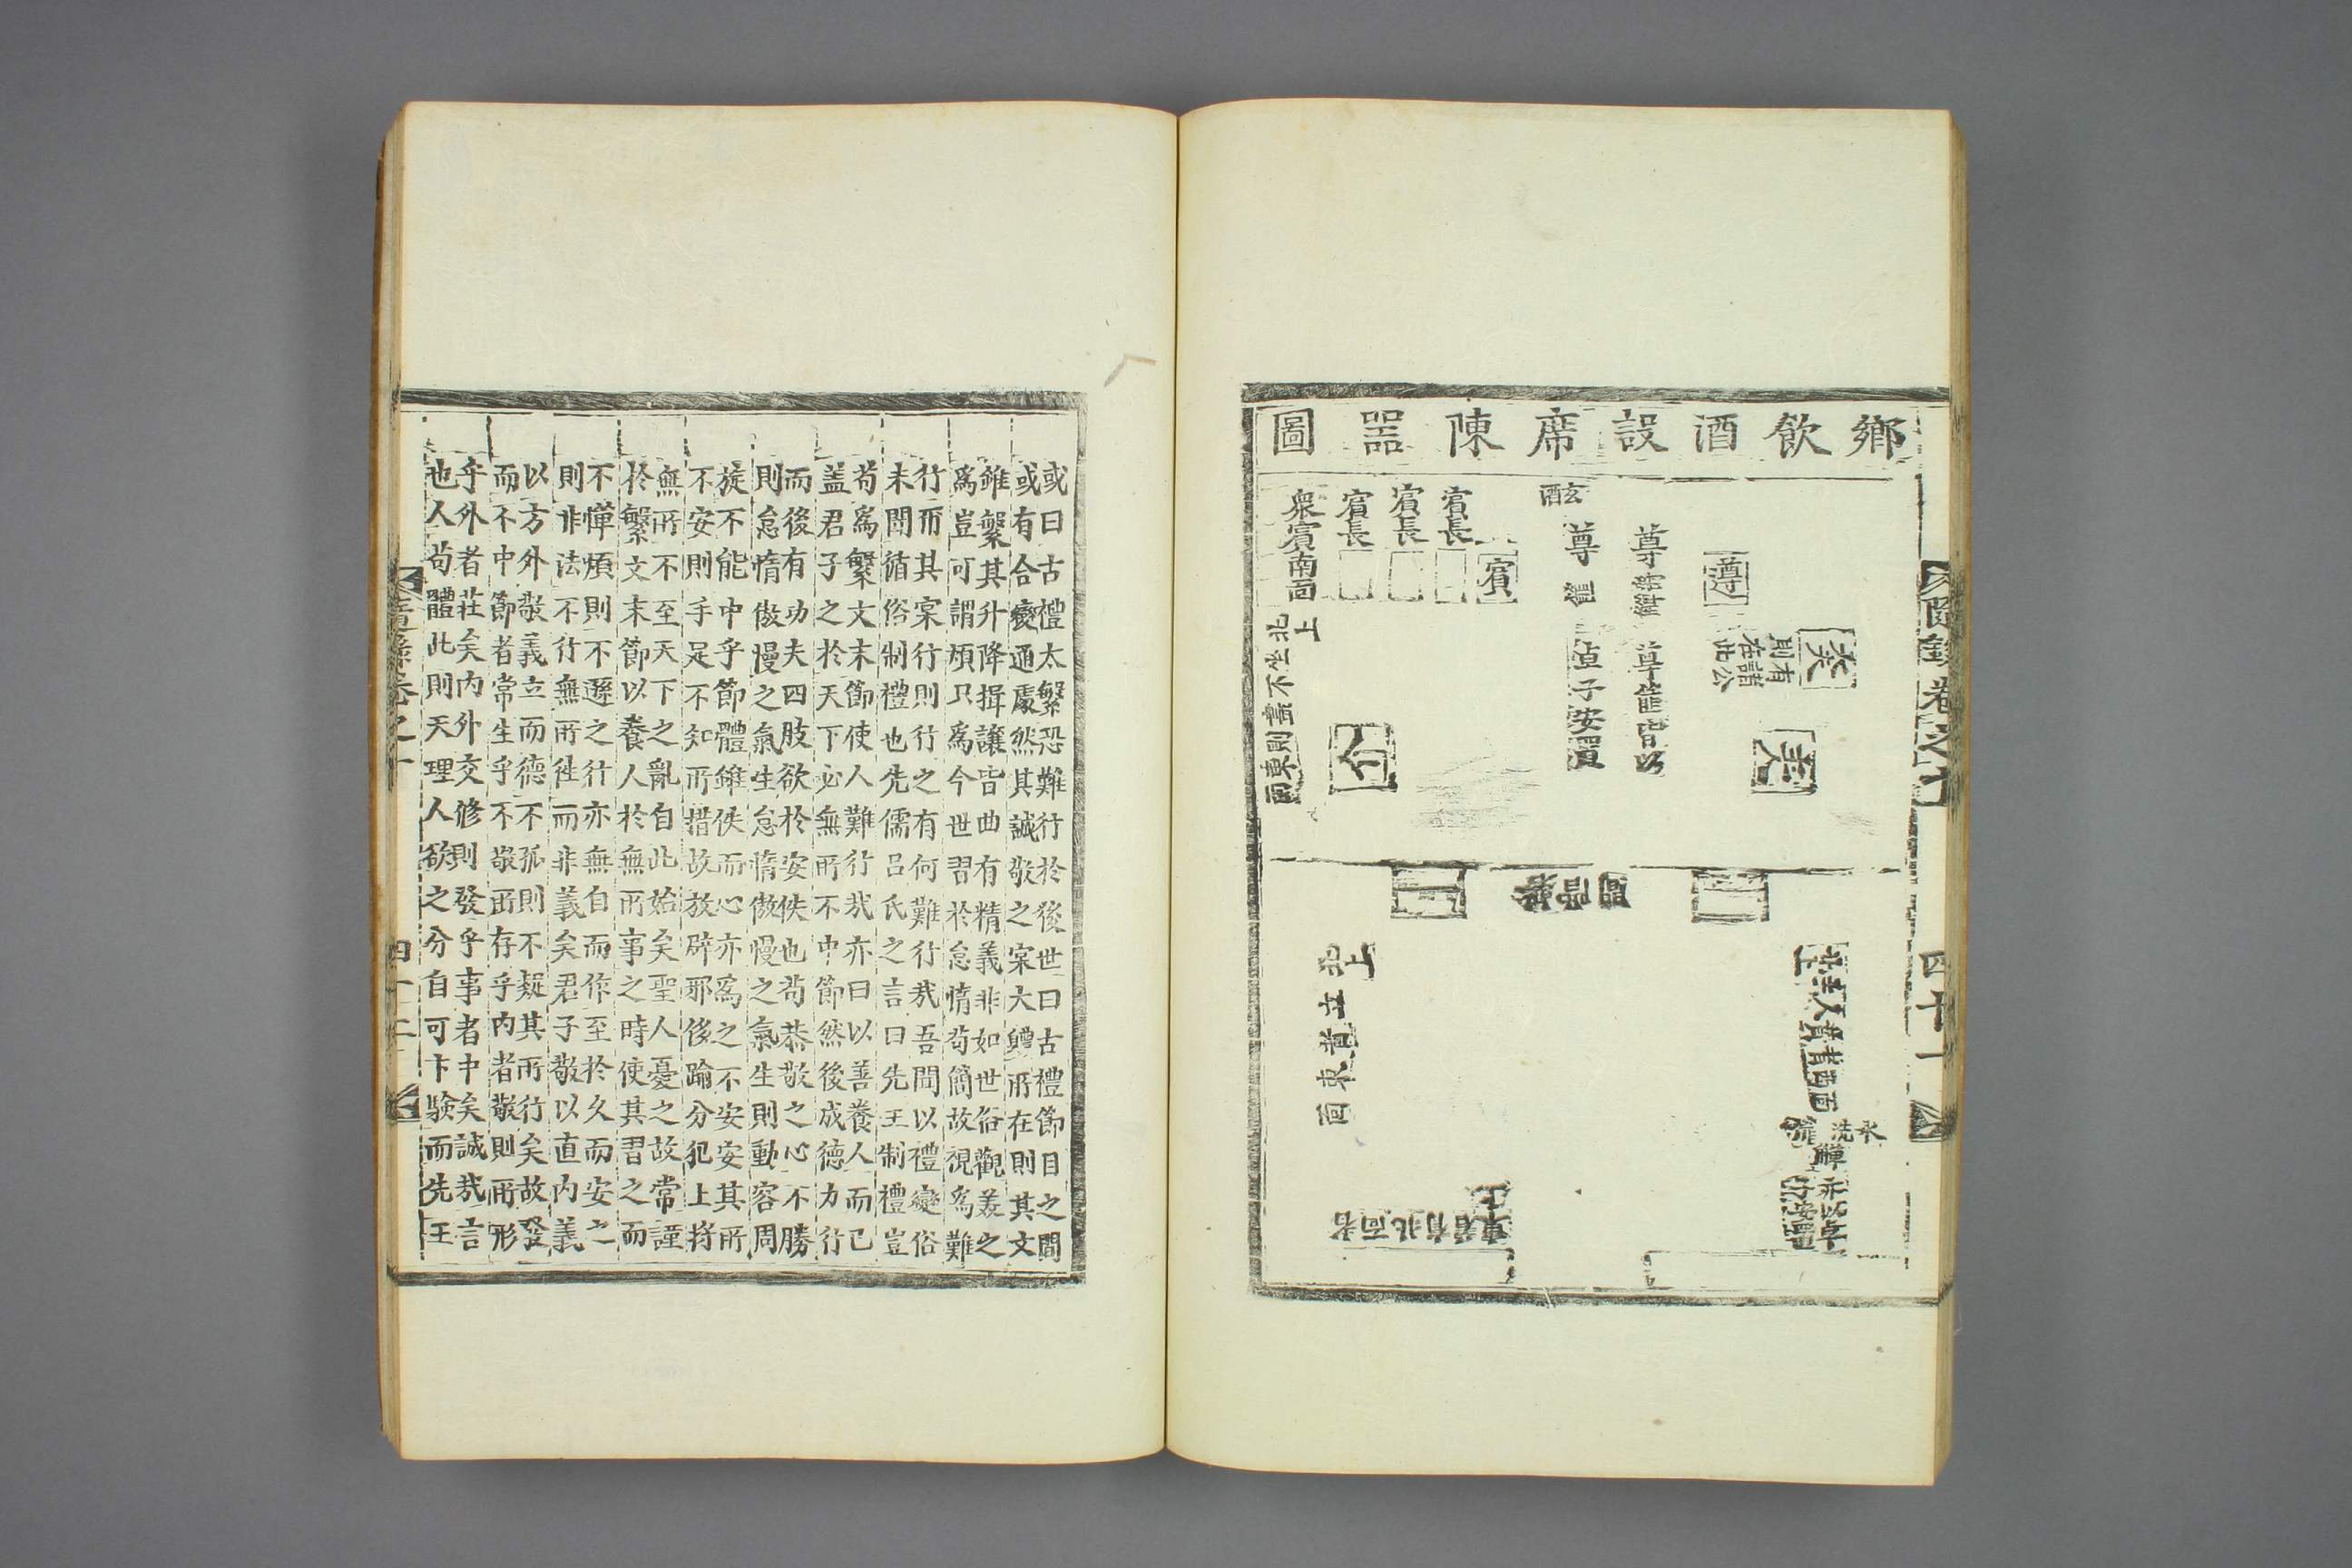 鄉飲酒設席陳器圖
遵
有諸公
則在此
尊
玄酒
尊
賓
賓長
賓長
賓長
衆賓南面
北上
介
北上
四十一
或曰古禮太繁恐難行於後世曰古禮節目之間
或有合變通處然其誠敬之宲大軆所在則其文
雖繁其升降揖讓皆曲有精義非如世俗觀羙之
爲豈可謂煩只爲今世習於怠惰苟簡故視爲難
行而其宲行則行之有何難行㢤吾聞以禮變俗
未聞循俗制禮也先儒呂氏之言曰先王制禮豈
苟爲繁文末節使人難行㢤亦曰以善養人而已
盖君子之於天下必無所不中節然後成德力行
而後有功夫四肢欲於安佚也苟恭敬之心不勝
則怠惰傲慢之氣生怠惰傲慢之氣生則動容周
旋不能中乎節體雖佚而心亦爲之不安安其所
不安則手足不知所措故放辟邪侈踰分犯上将
無所不至天下之亂自此始矣聖人憂之故常謹
於繁文末節以養人於無所事之時使其習之而
不憚煩則不遜之行亦無自而作至於久而安之
則非法不行無所徃而非義矣君子敬以直內義
以方外敬義立而德不孤則不疑其所行矣故發
而不中節者常生乎不敬所存乎內者敬則所形
乎外者莊矣內外交修則發乎事者中矣誠㢤言
也人苟體此則天理人欲之分自可卞驗而先王
四十二